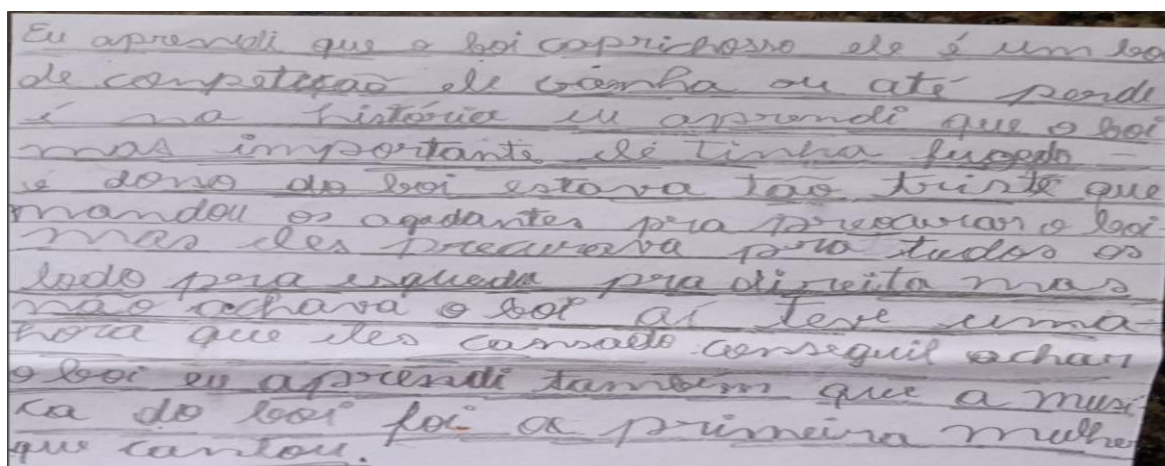 Eu aprendi que o boi caprichosso ele é um bo
de competição ele gamha ou até perde
é na história eu aprendi que o boi
mas importante ele tinha fugedo -
é dono do boi estava tão triste que
mandou os agadantes pra precuran o boi
mas eles precurava pra tudos os
lodo pra isqueda pra direita mas
não achava o boi aí teve uma-
hora que eles cansado conseguil achan
o boi eu aprendi tambem que a musi
ca do boi foi a primeira mulhe
que cantou.